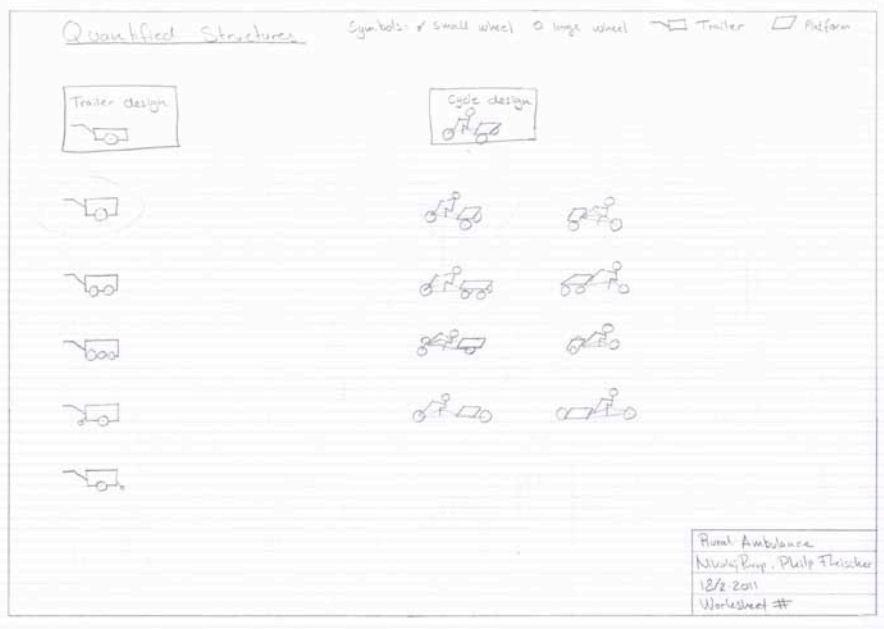 Quantified Structures
Symbols: small wheel large wheel Trailer Platform
Trailer design
Cycle design
Rural Ambulance
Philip Fleischer
18/2-2011
Worksheet #